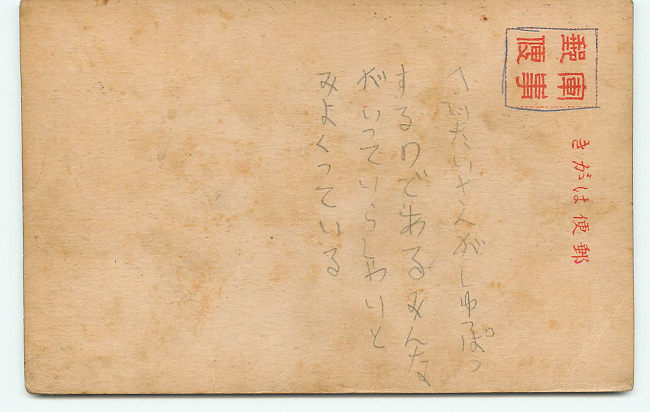 軍事
郵便
きがは便郵
へいたいさんがしゆぽっ
するのであるみんな
がいっていらしやいと
みよくっている